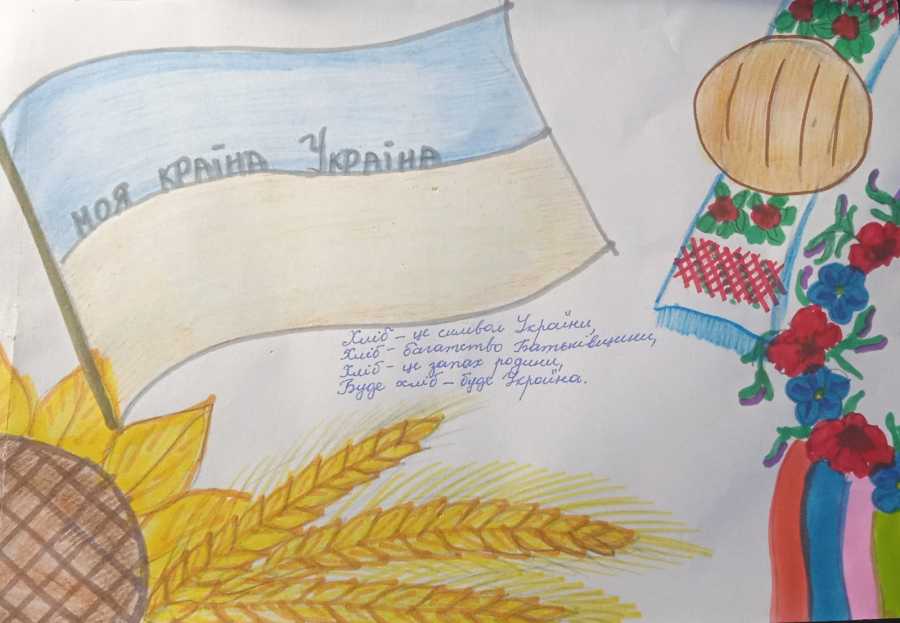 МОЯ КРАЇНА УКРАЇНА
Хліб – це символ України,
Хліб – багатство Батьківщини,
Хліб – це запах родини,
Буде хліб – буде Україна.